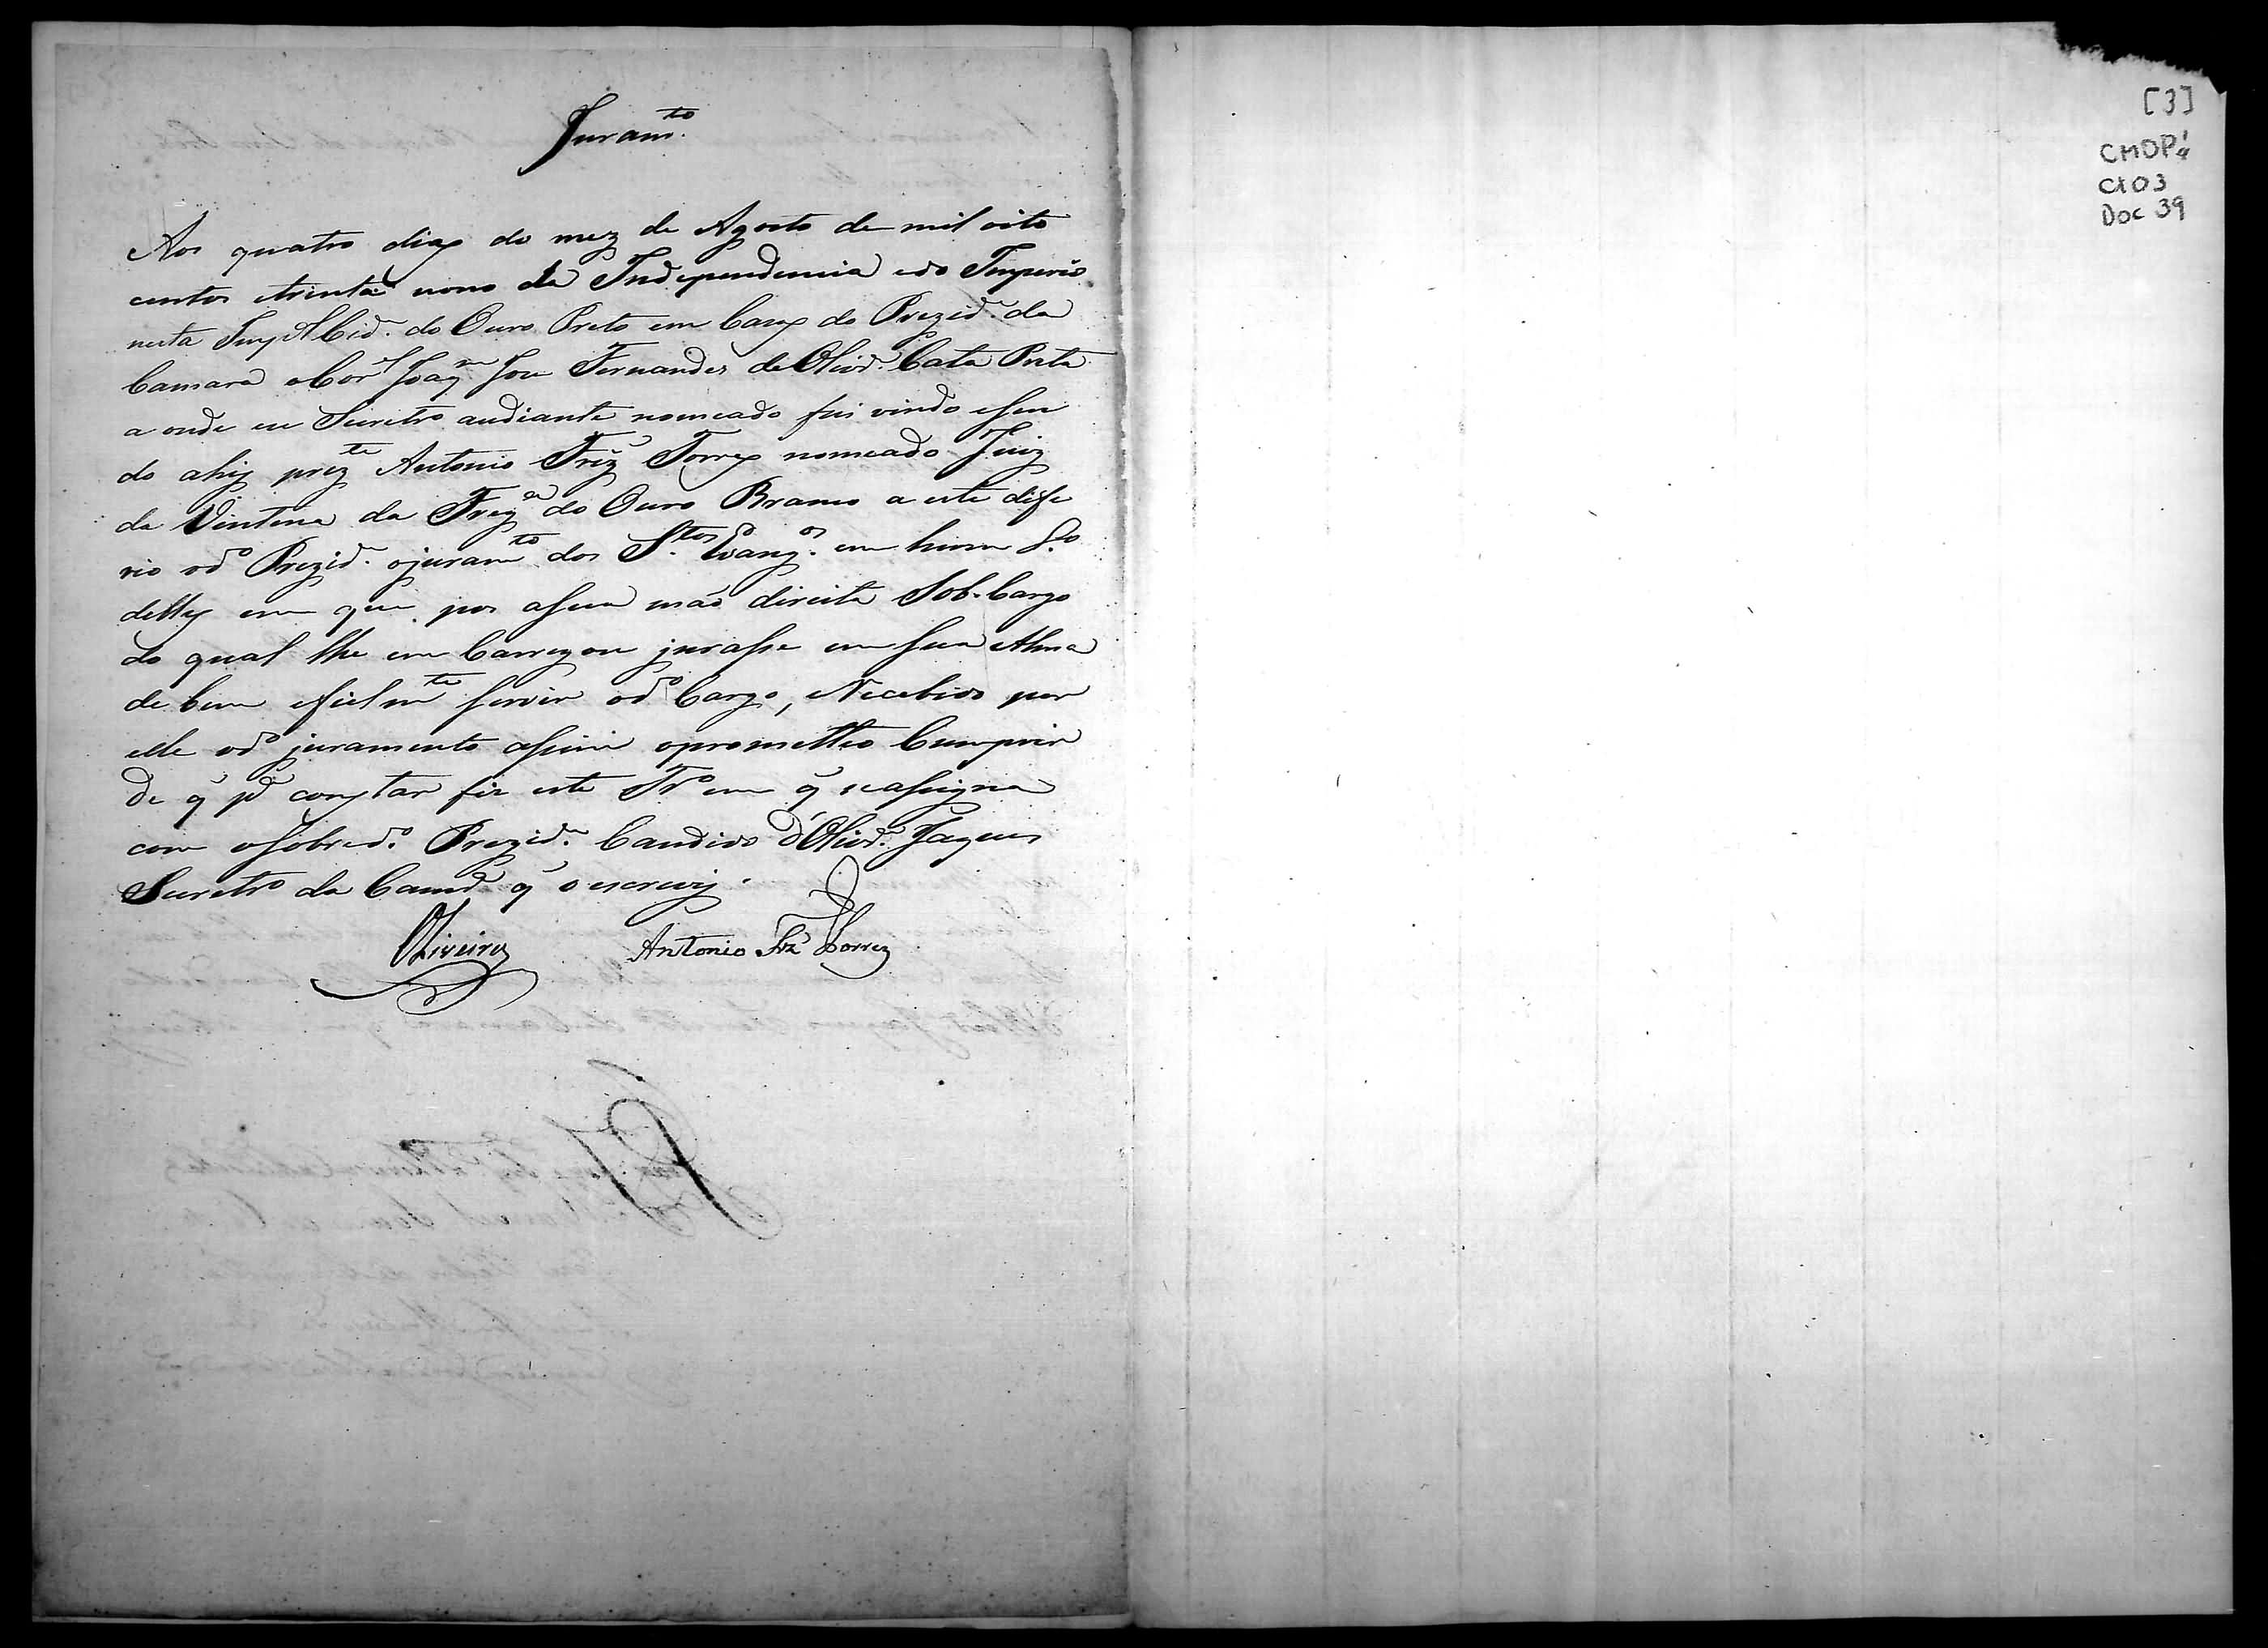 Juram.to
Aos quatro dias do mez de Agosto de mil oito
centos etrinta nono da Independencia edo Imperio
nesta Imp.al Cid.e do Ouro Preto em Cazas do Prezid.e da
Camara oCor.el Joaq.m Jose Fernandes deOliv.ra Cata Preta
a onde eu Secretr.o audiante nomeado fui vindo esen
do ahij prez.te Antonio Frz Torres nomeado Juiz
da Vintena da Freg.a do Ouro Branco a este dife
rio od.o Prezid.e ojuram.to dos S.tos Evang.os em hum L.o
delles em que pos asua mão direita Sob-Cargo
do qual lhe em Carregou jurasse em sua Alma
de bem efielm.te servir od.o Cargo, eRecebido por
elle od.o juramento assim oprometteo Cumprir
De q̃ p.a constar fiz este Tr.o em q̃ seassigna
com osobred.o Prezid.e Candido d'Oliv.ra Jaques
Secretr.o da Camr.a q̃ o escrevij.
Oliveira Antonio Frz Torrez
[3]
CMOP
CX 03
Doc 39